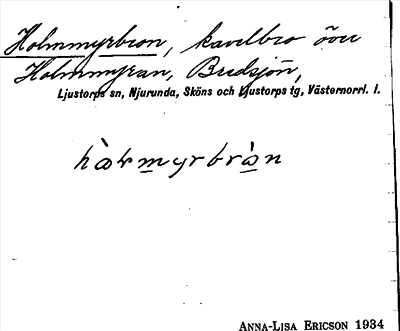 Holmmyrbron, kavelbro över
Holmmyran, Bredsjön,
Ljustorps sn, Njurunda, Sköns och Ljustorps tg, Västernorrl. l.
ANNA-LISA ERICSON 1934